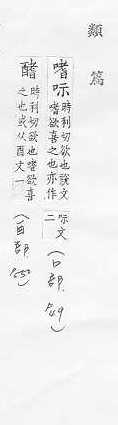 類篇
嗜呩時利切欲也說文
嗜欲喜之也亦作
呩文
二
(口部 P49)
時利切欲也嗜欲喜
之也或从酉文一
(酉部